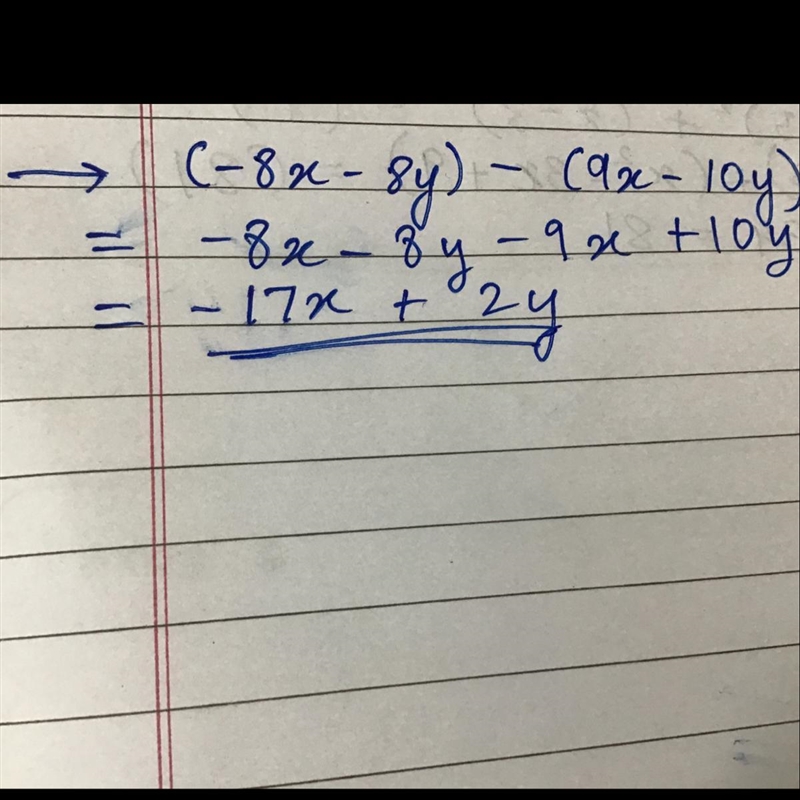 → (-8x - 8y) - (9x - 10y)
= -8x - 8y - 9x + 10y
= -17x + 2y